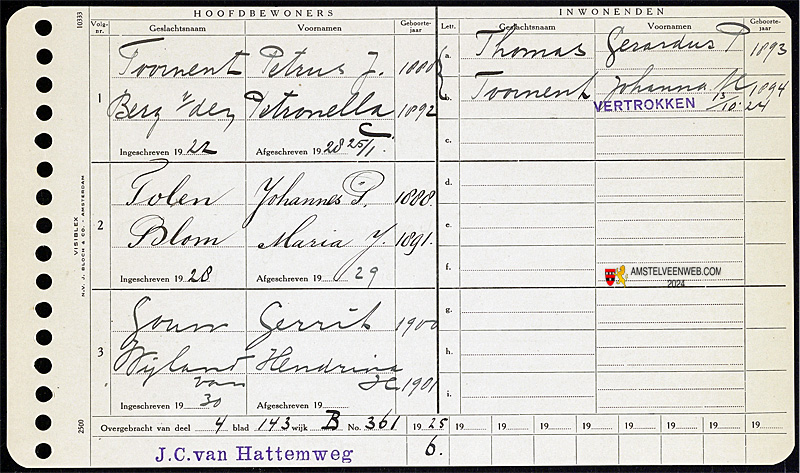 HOOFDBEWONERS
INWONENDEN
10333
Volg-nr.
Geslachtsnaam
Voornamen
Geboorte-jaar
Lett.
Geslachtsnaam
Voornamen
Geboorte-jaar
1
Toornent Petrus J.
Berg v/den Petronella 1892
Ingeschreven 1922 Afgeschreven 1928 25/1
a. Thomas Gerardus P 1893
b. Toornent Johanna M 1894
VERTROKKEN 15/10 24
c.
2
Tolen Johannes P. 1888
Blom Maria J. 1891.
Ingeschreven 1928 Afgeschreven 19 29
d.
e.
f.
AMSTELVEENWEB.COM
2024
3
Gouw Gerrit 1900
Wijland van Hendrina 1901
Ingeschreven 19 30 Afgeschreven 19
g.
h.
i.
VISIBLEX
N.V. J. BLOCH & CO. - AMSTERDAM
2500
Overgebracht van deel 4 blad 143 wijk B No. 361 1925 19 19 19 19 19 19 19
J.C.van Hattemweg 6.